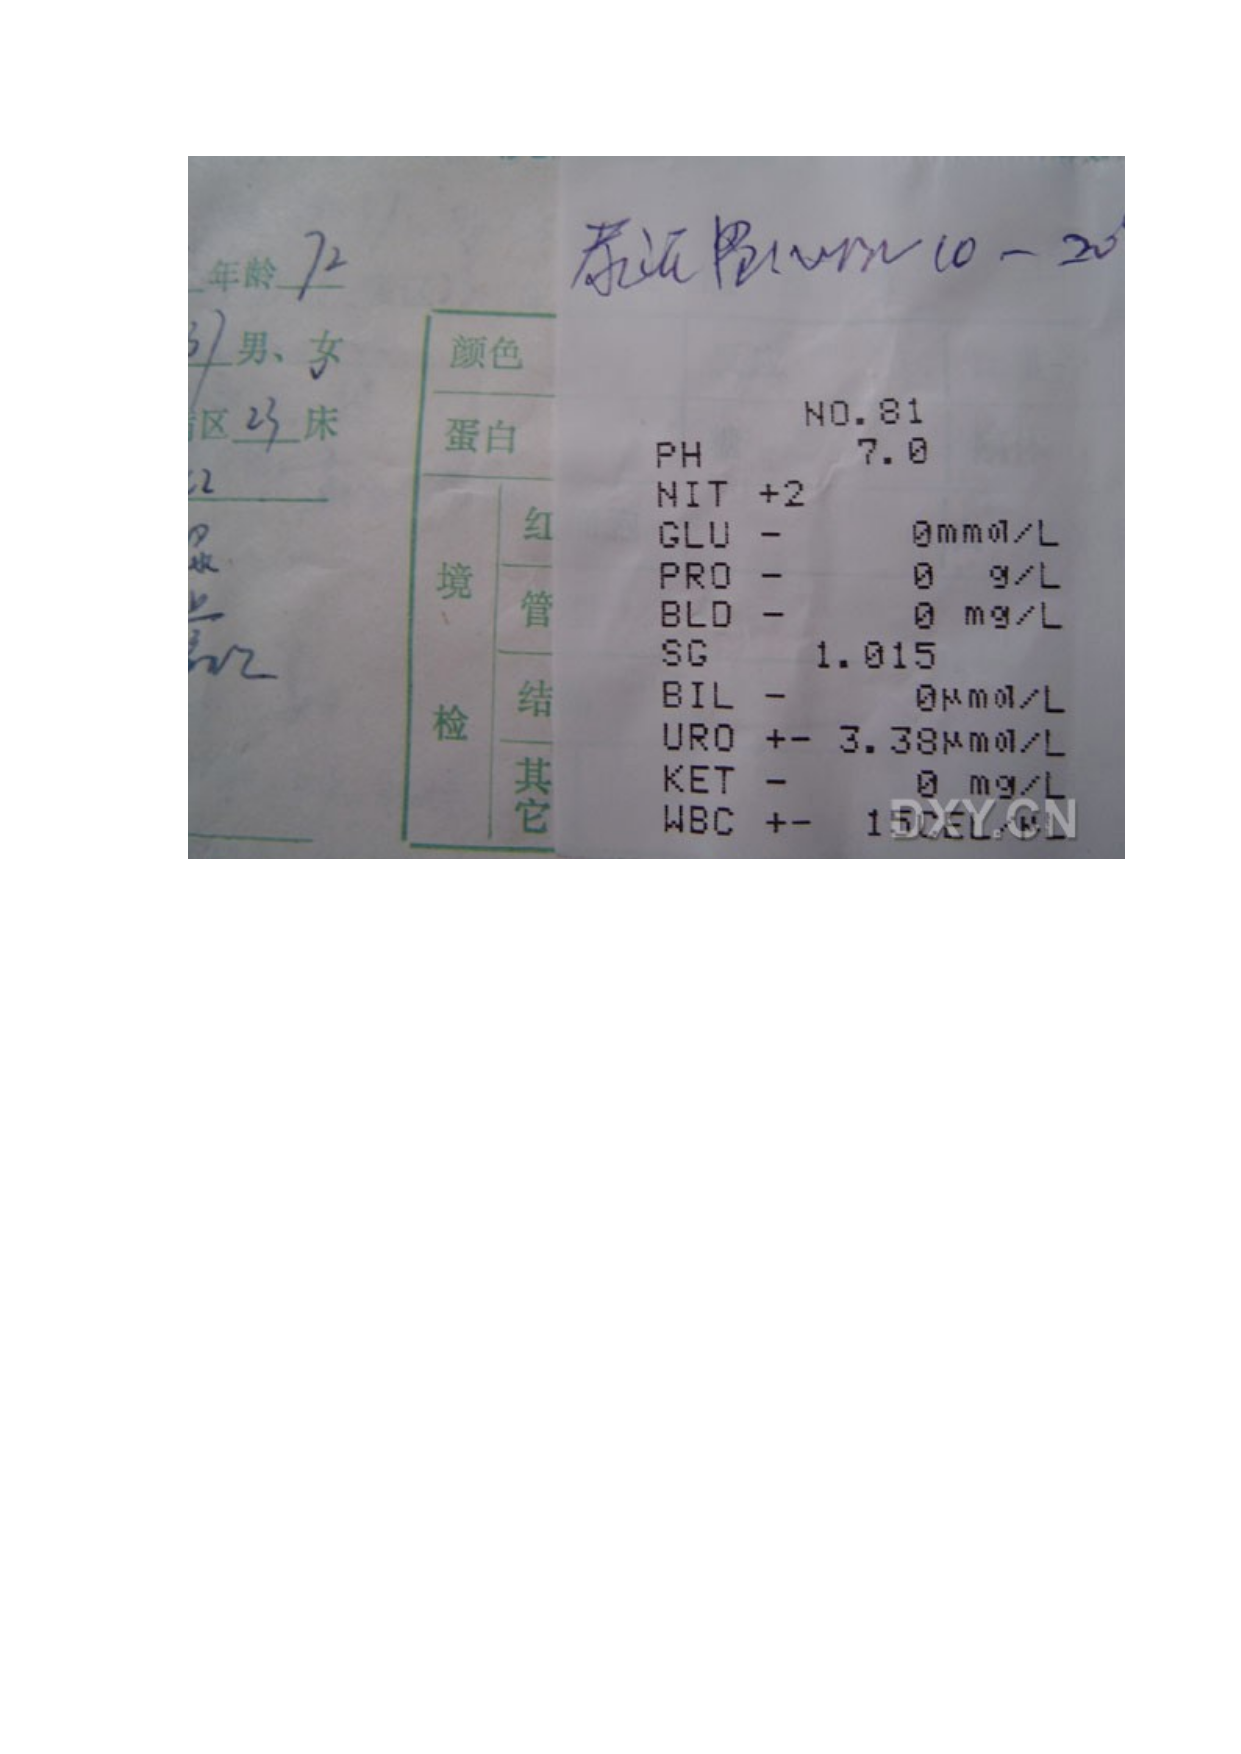 年齡 72
男、女
区 23 床
颜色
蛋白
境检
红
管
结
其它
10-20
NO.81
PH 7.0
NIT +2
GLU - 0mmol/L
PRO - 0 g/L
BLD - 0 mg/L
SG 1.015
BIL - 0μmol/L
URO +- 3.38μmol/L
KET - 0 mg/L
WBC +- 15CEL/μL
DXY.CN